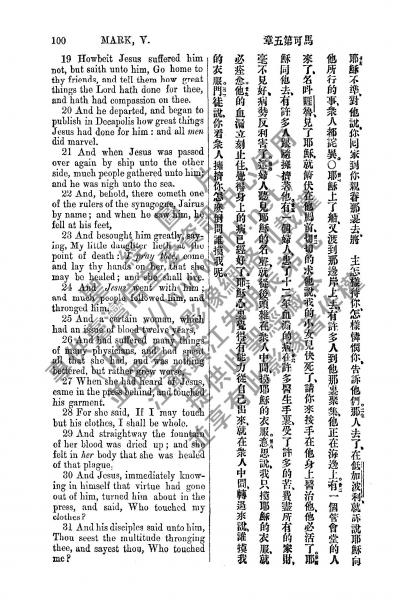 100 MARK, V.
19 Howbeit Jesus suffered him
not, but saith unto him, Go home to
thy friends, and tell them how great
things the Lord hath done for thee,
and hath had compassion on thee.
20 And he departed, and began to
publish in Decapolis how great things
Jesus had done for him: and all men
did marvel.
21 And when Jesus was passed
over again by ship unto the other
side, much people gathered unto him;
and he was nigh unto the sea.
22 And, behold, there cometh one
of the rulers of the synagogue, Jairus
by name; and when he saw him, he
fell at his feet,
23 And besought him greatly, say-
ing, My little daughter lieth at the
point of death: I pray thee, come
and lay thy hands on her, that she
may be healed; and she shall live.
24 And Jesus went with him;
and much people followed him, and
thronged him.
25 And a certain woman, which
had an issue of blood twelve years,
26 And had suffered many things
of many physicians, and had spent
all that she had, and was nothing
bettered, but rather grew worse,
27 When she had heard of Jesus,
came in the press behind, and touched
his garment.
28 For she said, If I may touch
but his clothes, I shall be whole.
29 And straightway the fountain
of her blood was dried up; and she
felt in her body that she was healed
of that plague.
30 And Jesus, immediately know-
ing in himself that virtue had gone
out of him, turned him about in the
press, and said, Who touched my
clothes?
31 And his disciples said unto him,
Thou seest the multitude thronging
thee, and sayest thou, Who touched
me?
馬可第五章
耶穌不準對他說你回家到你親眷那裏去將 主怎樣待你怎樣憐憫你告訴他們那人去了在低加波利就訴說耶穌向
他所行的事衆人都詫異○耶穌上了船又渡到那邊岸上有許多人到他那裏聚集他正在海邊上有一個管會堂的人
來了名叫睚魯見了耶穌就俯伏在他脚前切切的求他說我的小女兒快死了請你來按手在他身上醫治他他必活了耶
穌同他去有許多人跟隨擁擠著他有一個婦人患了十二年血漏的病在許多醫生手裏受了許多的苦費盡所有的家財
毫不見好病勢反利害了這婦人聽見耶穌的名聲就從後頭雜在人中間摸耶穌的衣服意思說我只摸耶穌的衣服就
必痊愈他的血漏立刻止住覺得身上的病已經好了耶穌心裏覺得有能力從自己出來就在衆人中間轉過來說誰摸我
的衣服門徒說你看衆人擁擠你怎麼倒問誰摸我呢